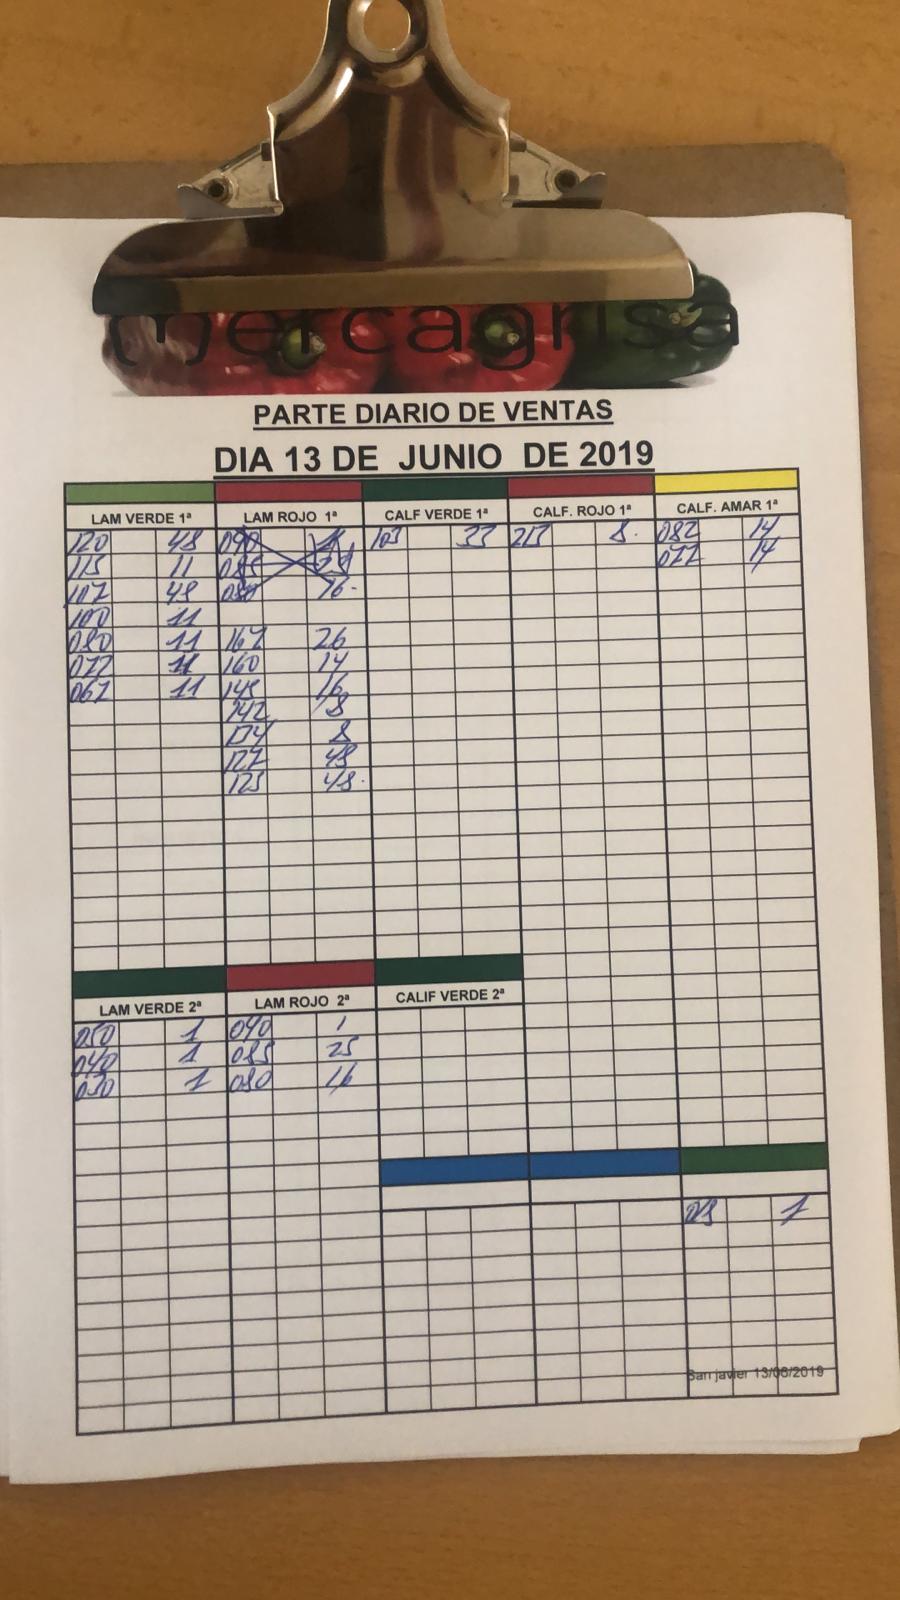 mercagrisa
PARTE DIARIO DE VENTAS
DIA 13 DE JUNIO DE 2019
LAM VERDE 1ª
120 48
115 11
107 48
100 11
080 11
077 11
067 11
LAM ROJO 1ª
090
085
080 16
167 26
160 14
145 16
142 8
134 8
127 48
125 48
CALF VERDE 1ª
103 33
CALF. ROJO 1ª
213 8
CALF. AMAR 1ª
082 14
077 14
LAM VERDE 2ª
050 1
040 1
030 1
LAM ROJO 2ª
090 1
085 25
080 16
CALIF VERDE 2ª
1
San javier 13/06/2019